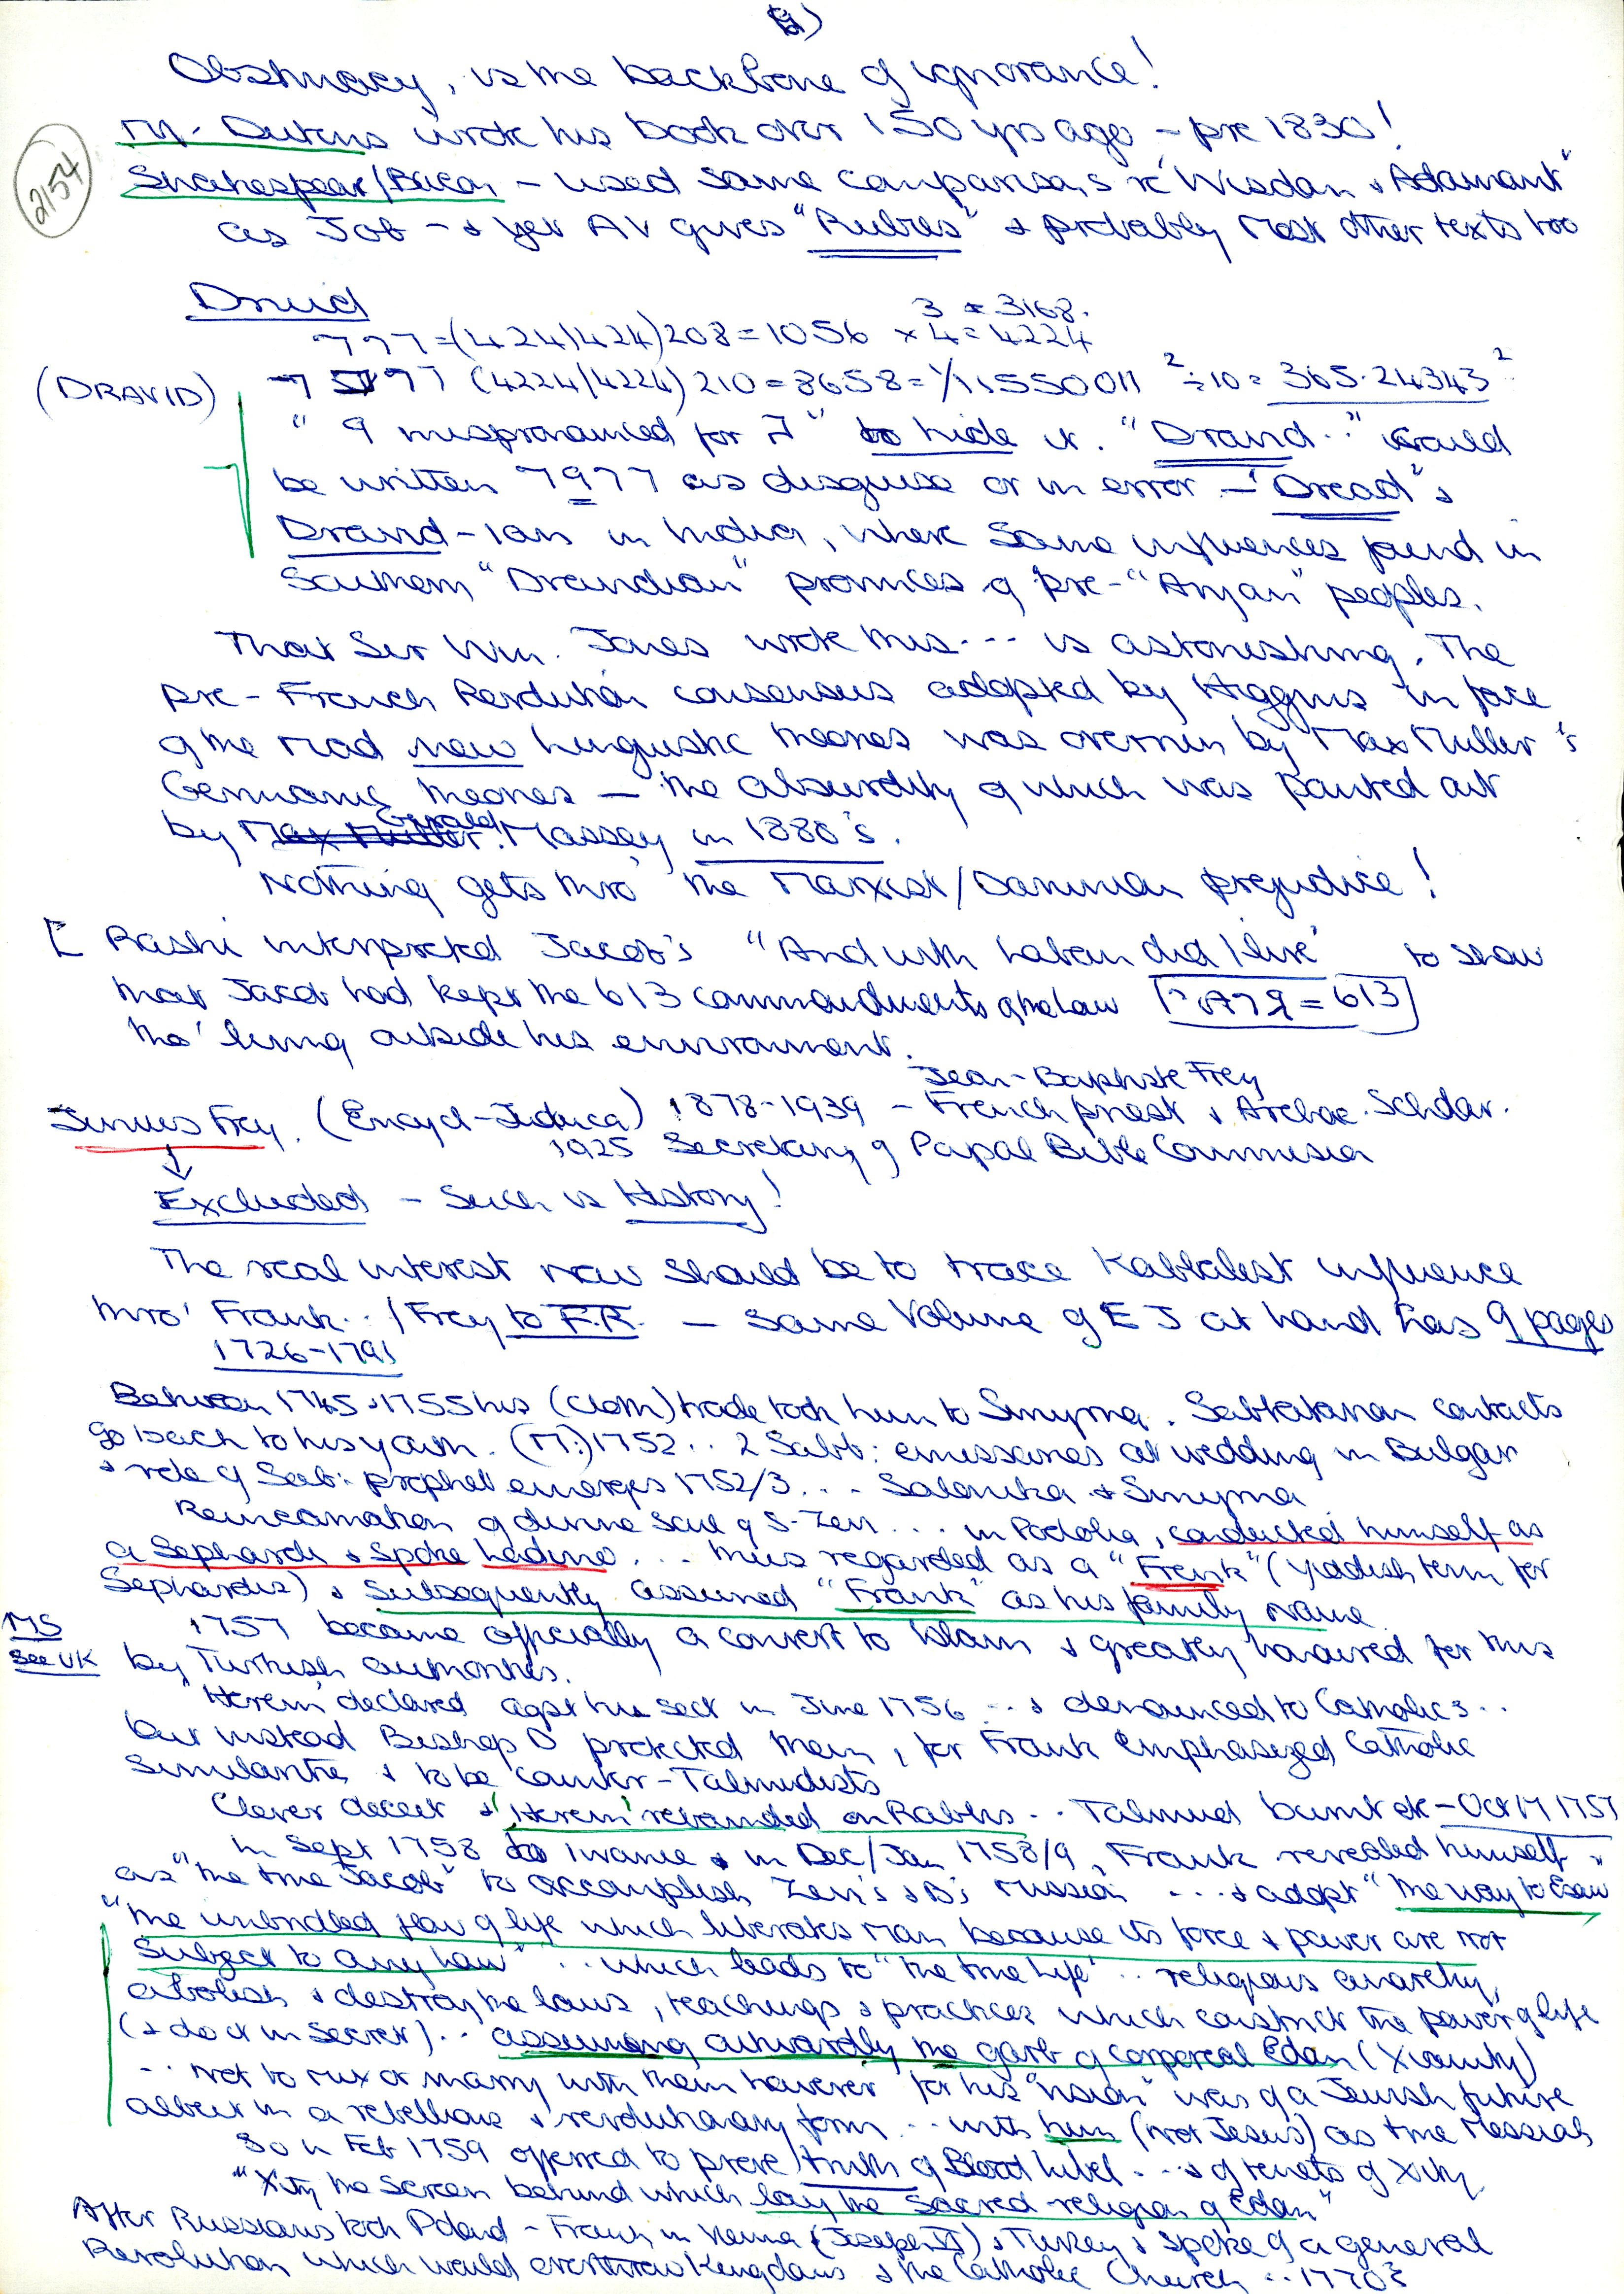 9)
Obstinacy, is the backbone of ignorance!
M. Dutens wrote his book over 150 yrs ago - pre 1830!
2154
Shakespear/Bacon - used same comparisons re "Wisdom & Adamant"
as Job - & yet AV gives "Rubies" & probably most other texts too
Druid
3 = 3168.
= (424/424) 208 = 1056 × 4 = 4224
(DRAVID)
(4224/4224) 210 = 8658 = 1/11550011 ² ÷ 10 = 365.24343 ²
" 9 mispronounced for " to hide it. "Dravid.." would
be written 7977 as disguise or in error - "Dread" &
Dravid-ian in India, where same influences found in
Southern "Dravidian" provinces of pre-"Aryan" peoples.
That Sir Wm. Jones wrote this... is astonishing. The
pre-French Revolution consensus adopted by Higgins in face
of the mad new linguistic theories was overrun by Max Muller's
Germanic theories - the absurdity of which was pointed out
by Gerald Massey in 1880's.
Nothing gets thro' the Marxist/Darwinian prejudice!
[ Rashi interpreted Jacob's "And with Laban did I live" to show
that Jacob had kept the 613 commandments of the law = 613]
tho' living outside his environment.
Jean-Baptiste Frey
Junius Frey. (Encycl-Judaica) 1878-1939 - French priest & Archae. Scholar.
1925 Secretary of Papal Bible Commission
Excluded - Such is History!
The real interest now should be to trace Kabbalist influence
thro' Frank.. / Frey to F.R. - Same Volume of E J at hand has 9 pages
1726-1791
Between 1745 & 1755 his (cloth) trade took him to Smyrna. Sabbatarian contacts
go back to his youth. (M:) 1752.. 2 Sabb: emissaries at wedding in Bulgar
& role of Sab: prophet emerges 1752/3... Salonika & Smyrna
Reincarnation of divine soul of S-Zevi... in Podolia, conducted himself as
a Sephardi & spoke Ladino... thus regarded as a "Frenk" (Yiddish term for
Sephardis) & subsequently assumed "Frank" as his family name
MS
1757 became officially a convert to Islam & greatly honoured for this
See UK
by Turkish authorities.
"Herem" declared agst his sect in June 1756 .. & denounced to Catholics..
but instead Bishop D protected them, for Frank emphasized Catholic
similarities & to be counter-Talmudists
Clever deceit & 'Herem' rebounded on Rabbis.. Talmud burnt etc - Oct 17 1757
In Sept 1758 to Iwanie & in Dec/Jan 1758/9, Frank revealed himself
as "the true Jacob" to accomplish Zevi's & B's mission .... & adopt "the way to Esau
"the unbridled flow of life which liberates man because its force & power are not
subject to any law".. which leads to "the true life".. religious anarchy,
abolish & destroy the laws, teachings & practices which constrict the power of life
(& do it in secret).. assuming outwardly the garb of corporeal Edom (Xianity)
.. not to mix or marry with them however for his "vision" was of a Jewish future
albeit in a rebellious & revolutionary form ... with him (not Jesus) as true Messiah
So in Feb 1759 offered to prove truth of Blood Libel ... & of tenets of Xity,
"Xity the screen behind which lay the sacred religion of Edom"
After Russians took Poland - Frank in Vienna (Joseph II) & Turkey & spoke of a general
Revolution which would overthrow Kingdoms & the Catholic Church .. 1770's